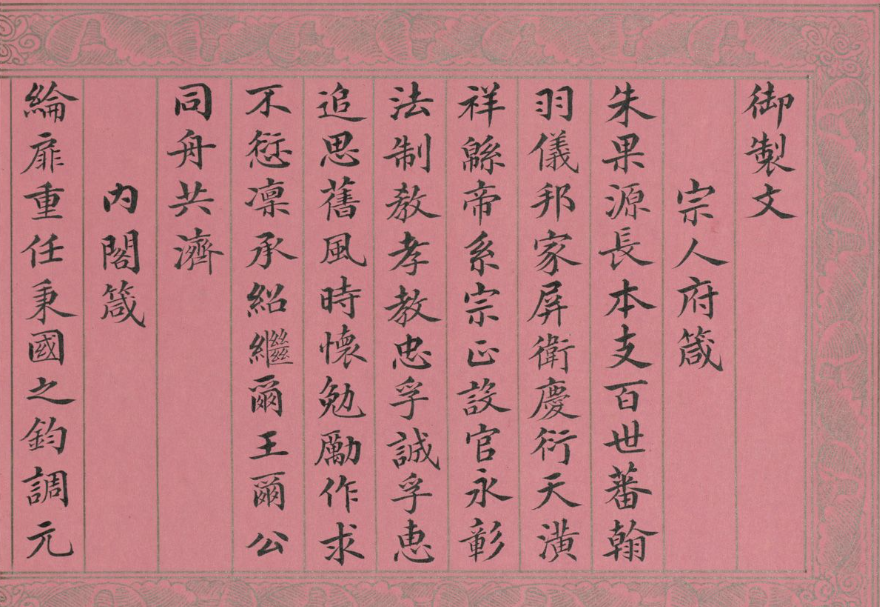 御製文
宗人府箴
朱果源長本支百世蕃翰
羽儀邦家屏衛慶衍天潢
祥緜帝系宗正設官永彰
法制教孝教忠孚誠孚惠
追思舊風時懷勉勵作求
不愆凜承紹繼爾王爾公
同舟共濟
内閣箴
綸扉重任秉國之鈞調元